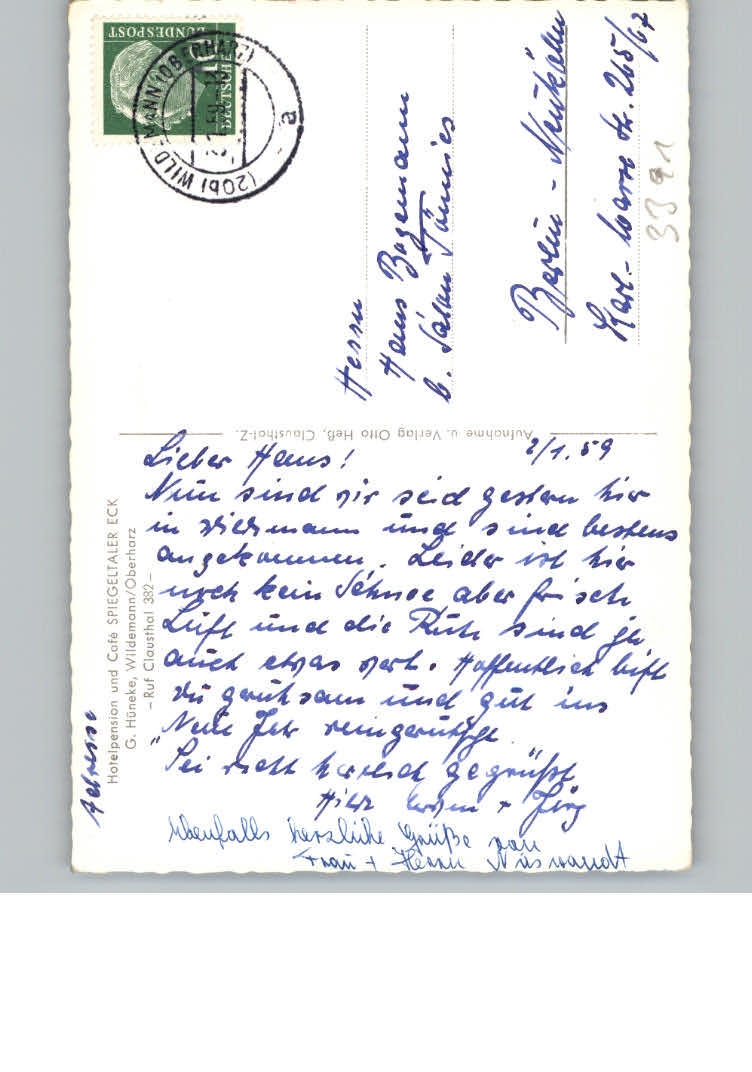 DEUTSCHE
BUNDESPOST
(20b) WILDEMANN (OBERHARZ)
a
Herrn
Hans Bogemann
b. Salon Tönnies
Berlin - Neukölln
Karl-Marx Str. 265/67
3391
Aufnahme u. Verlag Otto Heß, Clausthal-Z.
Adresse
Hotelpension und Café SPIEGELTALER ECK
G. Hüneke, Wildemann/Oberharz
– Ruf Clausthal 382 –
2/1.59
Lieber Hans!
Nun sind wir seid gestern hier
in Wildemann und sind bestens
angekommen. Leider ist hier
noch kein Schnee aber frisch
Luft und die Ruh sind ja
auch etwas wert. Hoffentlich bist
du geruhsam und gut ins
Neue Jahr reingerutscht.
Sei recht herzlich gegrüßt
+ Jürg
Ebenfalls herzliche Grüße von
Frau + Herrn